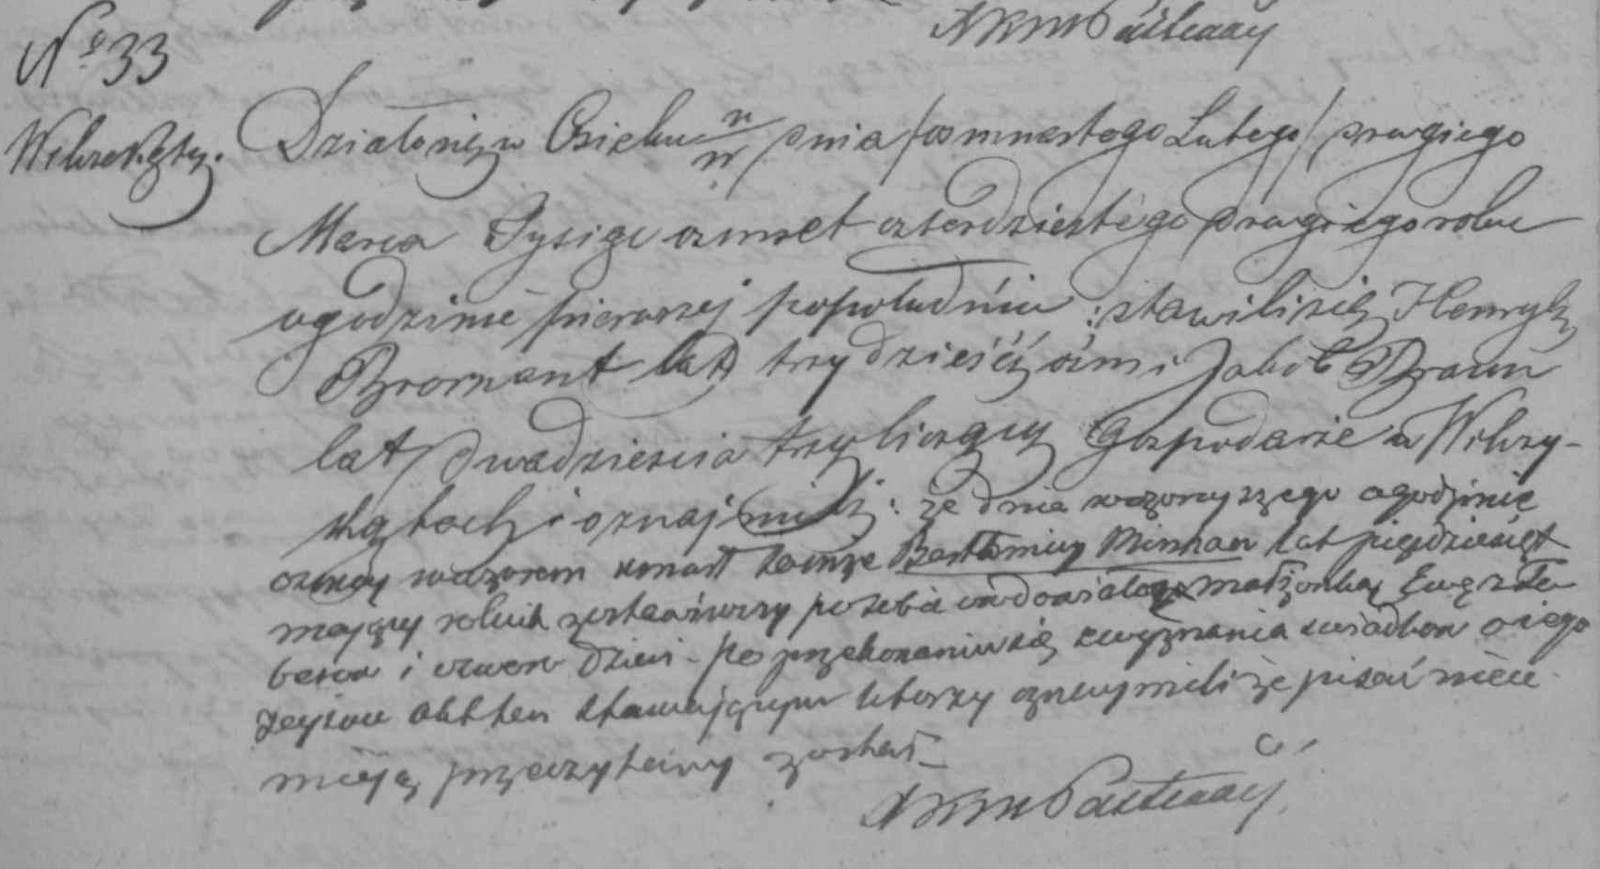 No 33
Wilczekąty.
Działo się w Osieku n/W dnia /osmnastego Lutego/ drugiego
Marca Tysiąc ośmset czterdziestego drugiego roku
o godzinie pierwszej popołudniu; stawili się Henryk
lat trzydzieści ośm i Jakób Braun
lat dwadzieścia trzy liczący Gospodarze w Wilczy-
kątach i oznajmili; że dnia wczorayszego o godzinie
osmey wieczorem umarł tamże Bartłomiey lat pięćdziesiąt
mający rolnik zostawiwszy po sobie owdowiałą małżonkę Ewę
i dzieci. Po przekonaniu się z wyznania świadków o iego
zejściu Akt ten stawającym którzy oznaymili że pisać nieu-
mieją przeczytany został